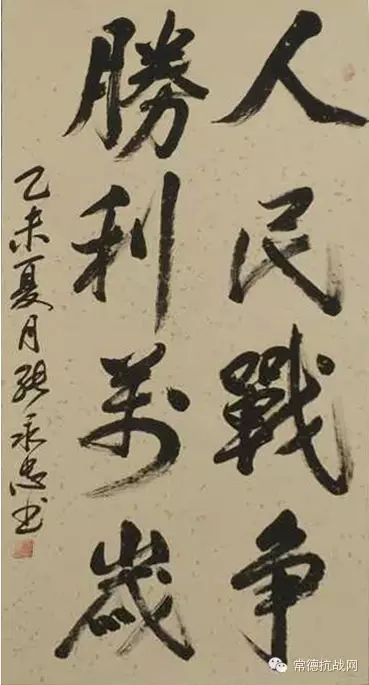 人民戰争
勝利萬歲
乙未夏月張承忠書
常德抗战网